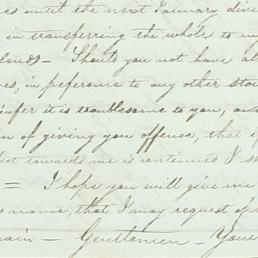 es until the next January divi
in transferring the whole to m
Should you not have at
es, in preference to any other sto
it is troublesome to you, aut
n of giving you offence, that
towards me is continued I s
= I hope you will give me
name, that I may request of
main — Gentlemen — Your